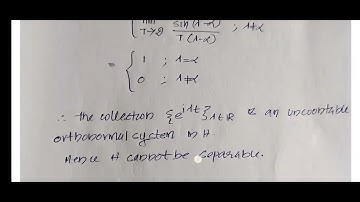 lim T→∞ sin(λ-α) / T(λ-α) ; λ≠α
= { 1 ; λ=α
0 ; λ≠α
∴ The collection {e^{iλt}}λ∈ℝ is an uncountable
orthonormal system in H.
Hence H cannot be separable.